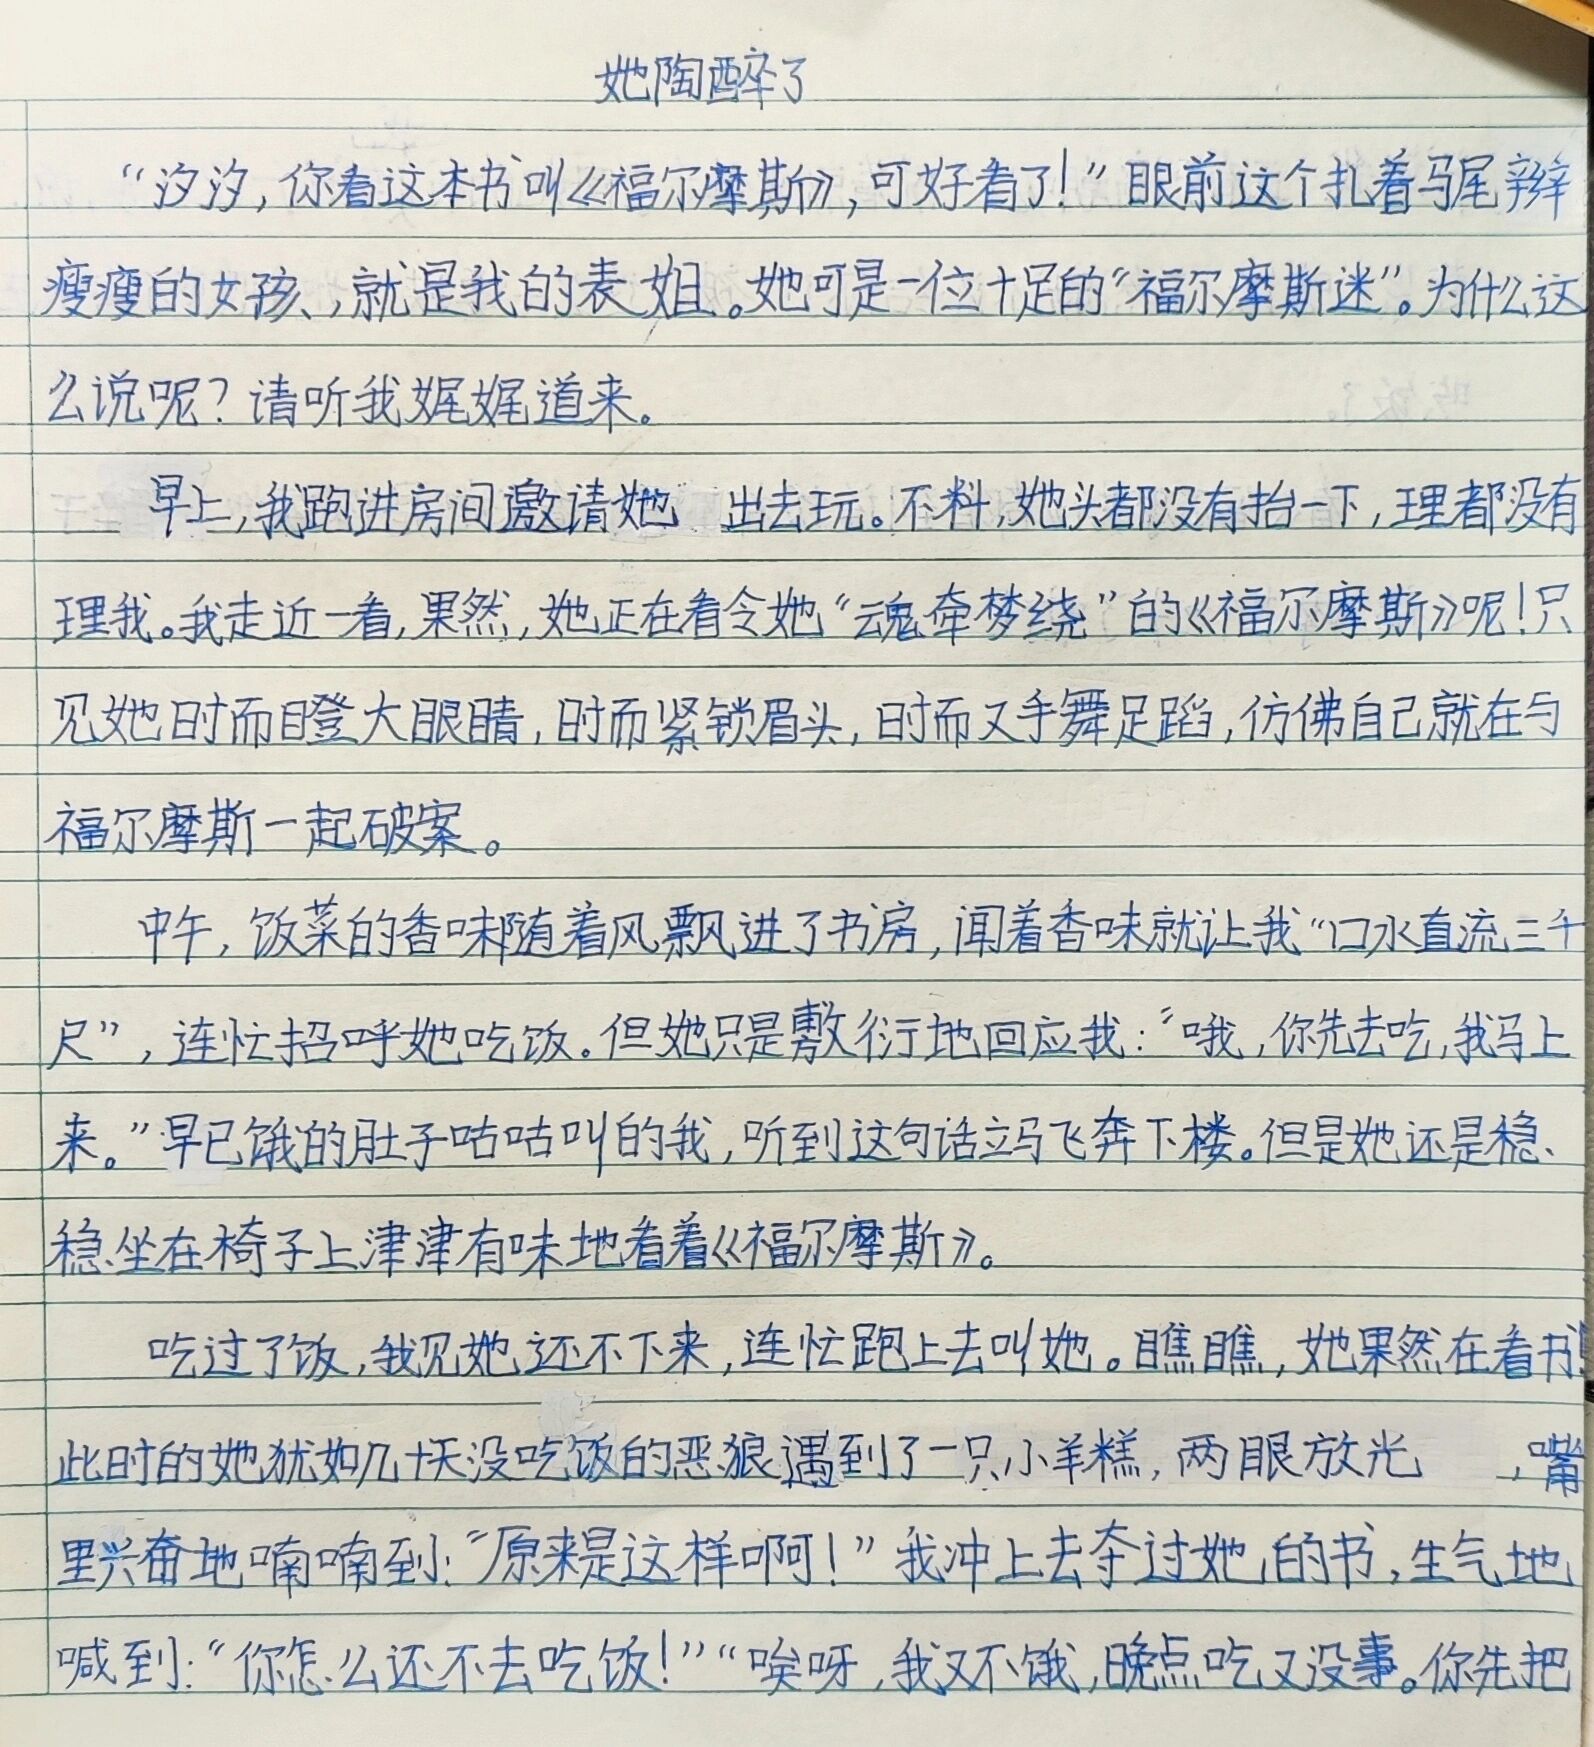 她陶醉了
“汐汐，你看这本书叫《福尔摩斯》，可好看了！”眼前这个扎着马尾辫
瘦瘦的女孩，就是我的表姐。她可是一位十足的“福尔摩斯迷”。为什么这
么说呢？请听我娓娓道来。
早上，我跑进房间邀请她 出去玩。不料，她头都没有抬一下，理都没有
理我。我走近一看，果然，她正在看令她“魂牵梦绕”的《福尔摩斯》呢！只
见她时而瞪大眼睛，时而紧锁眉头，时而又手舞足蹈，仿佛自己就在与
福尔摩斯一起破案。
中午，饭菜的香味随着风飘进了书房，闻着香味就让我“口水直流三千
尺”，连忙招呼她吃饭。但她只是敷衍地回应我：“哦，你先去吃，我马上
来。”早已饿的肚子咕咕叫的我，听到这句话立马飞奔下楼。但是她还是稳
稳坐在椅子上津津有味地看着《福尔摩斯》。
吃过了饭，我见她还不下来，连忙跑上去叫她。瞧瞧，她果然在看书！
此时的她犹如几十天没吃饭的恶狼遇到了一只小羊糕，两眼放光 ，嘴
里兴奋地喃喃到：“原来是这样啊！”我冲上去夺过她的书，生气地
喊到：“你怎么还不去吃饭！”“唉呀，我又不饿，晚点吃又没事。你先把